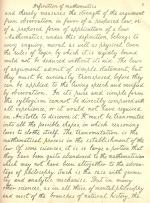 Definition of mathematics 5
and thereby measures the strength of the argument
from observation in favor of a proposed law or
of a proposed form of application of a law.
Mathematics, under this definition, belongs to
every enquiry, moral as well as physical. Even
the rules of logic, by which it is rigidly bound,
could not be deduced without its aid. The laws
of argument admit of simple statement, but
they must be curiously transposed before they
can be applied to the living speech and verified
by observation. In its pure and simple form
the syllogism cannot be directly compared with
all experience, or it would not have required
an Aristotle to discover it. It must be transmuted
into all the possible shapes in which reasoning
loves to clothe itself. The transmutation is the
mathematical process in the establishment of the
law. Of some sciences, it is so large a portion that
they have been quite abandoned to the mathematician
which may not have been altogether to the advan-
tage of philosophy. Such is the case with geome-
try and analytic mechanics. But in many
other sciences, as in all those of mental philosophy
and most of the branches of natural history, the